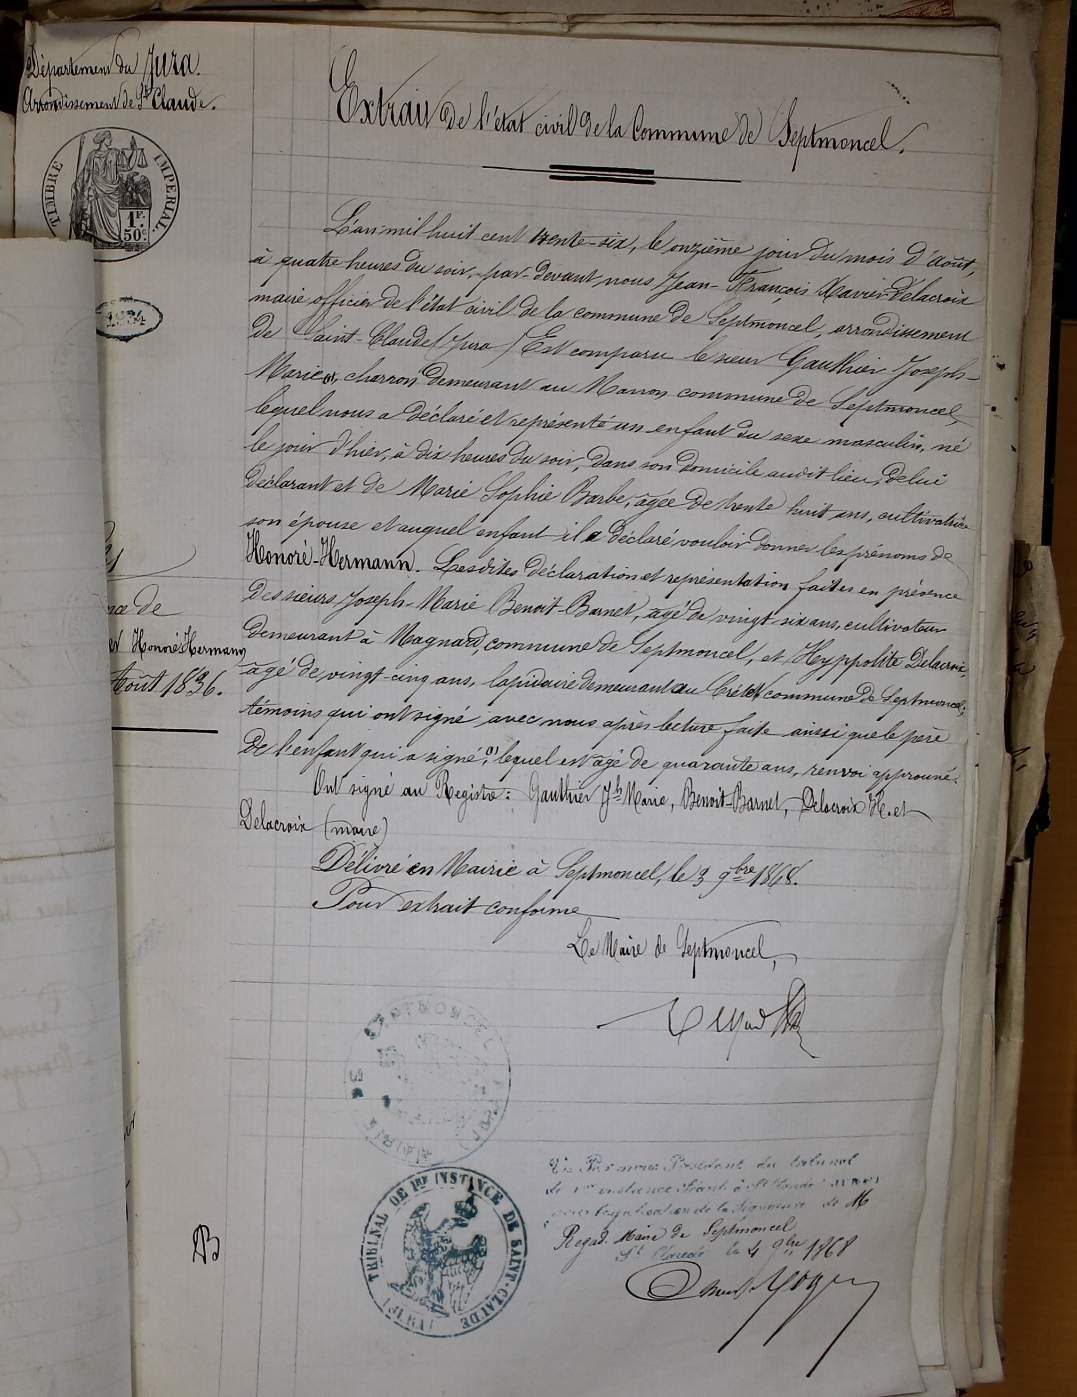 Département du Jura.
Arrondissement de St Claude.
TIMBRE IMPERIAL.
1F.
50c.
1934
Extrait de l'état civil de la Commune de Septmoncel.
L'an mil huit cent trente-six, le onzième jour du mois d'Août,
à quatre heures du soir, par-devant nous Jean-François Xavier Delacroix
maire officier de l'état civil de la commune de Septmoncel, arrondissement
de Saint-Claude (Jura) Est comparu le sieur Gauthier Joseph-
Marie, charron demeurant au Manon commune de Septmoncel,
lequel nous a déclaré et représenté un enfant du sexe masculin, né
le jour d'hier, à dix heures du soir, dans son domicile audit lieu, de lui
déclarant et de Marie Sophie Barbe, âgée de trente huit ans, cultivatrice
son épouse et auquel enfant il a déclaré vouloir donner les prénoms de
Honoré-Hermann. Lesdites déclaration et représentation faites en présence
des sieurs Joseph-Marie Benoit-Barnet, âgé de vingt-six ans, cultivateur
demeurant à Magnard, commune de Septmoncel, et Hyppolite Delacroix,
âgé de vingt-cinq ans, lapidaire demeurant au Crêtet commune de Septmoncel,
témoins qui ont signé avec nous après lecture faite ainsi que le père
de l'enfant qui a signé, a) lequel est âgé de quarante ans, renvoi approuvé.
Ont signé au Registre: Gauthier Jh Marie, Benoit-Barnet, Delacroix H. et
Delacroix (maire)
Délivré en Mairie à Septmoncel, le 3 9bre 1868.
Pour extrait conforme
Le Maire de Septmoncel,
de
Honoré Hermann
Août 1836.
MAIRIE DE SEPTMONCEL
TRIBUNAL DE 1RE INSTANCE DE SAINT-CLAUDE
(JURA)
Vu Par nous Président du tribunal
de 1re instance séant à St Claude
pour légalisation de la signature de M
Regad Maire de Septmoncel
St Claude le 4 9bre 1868